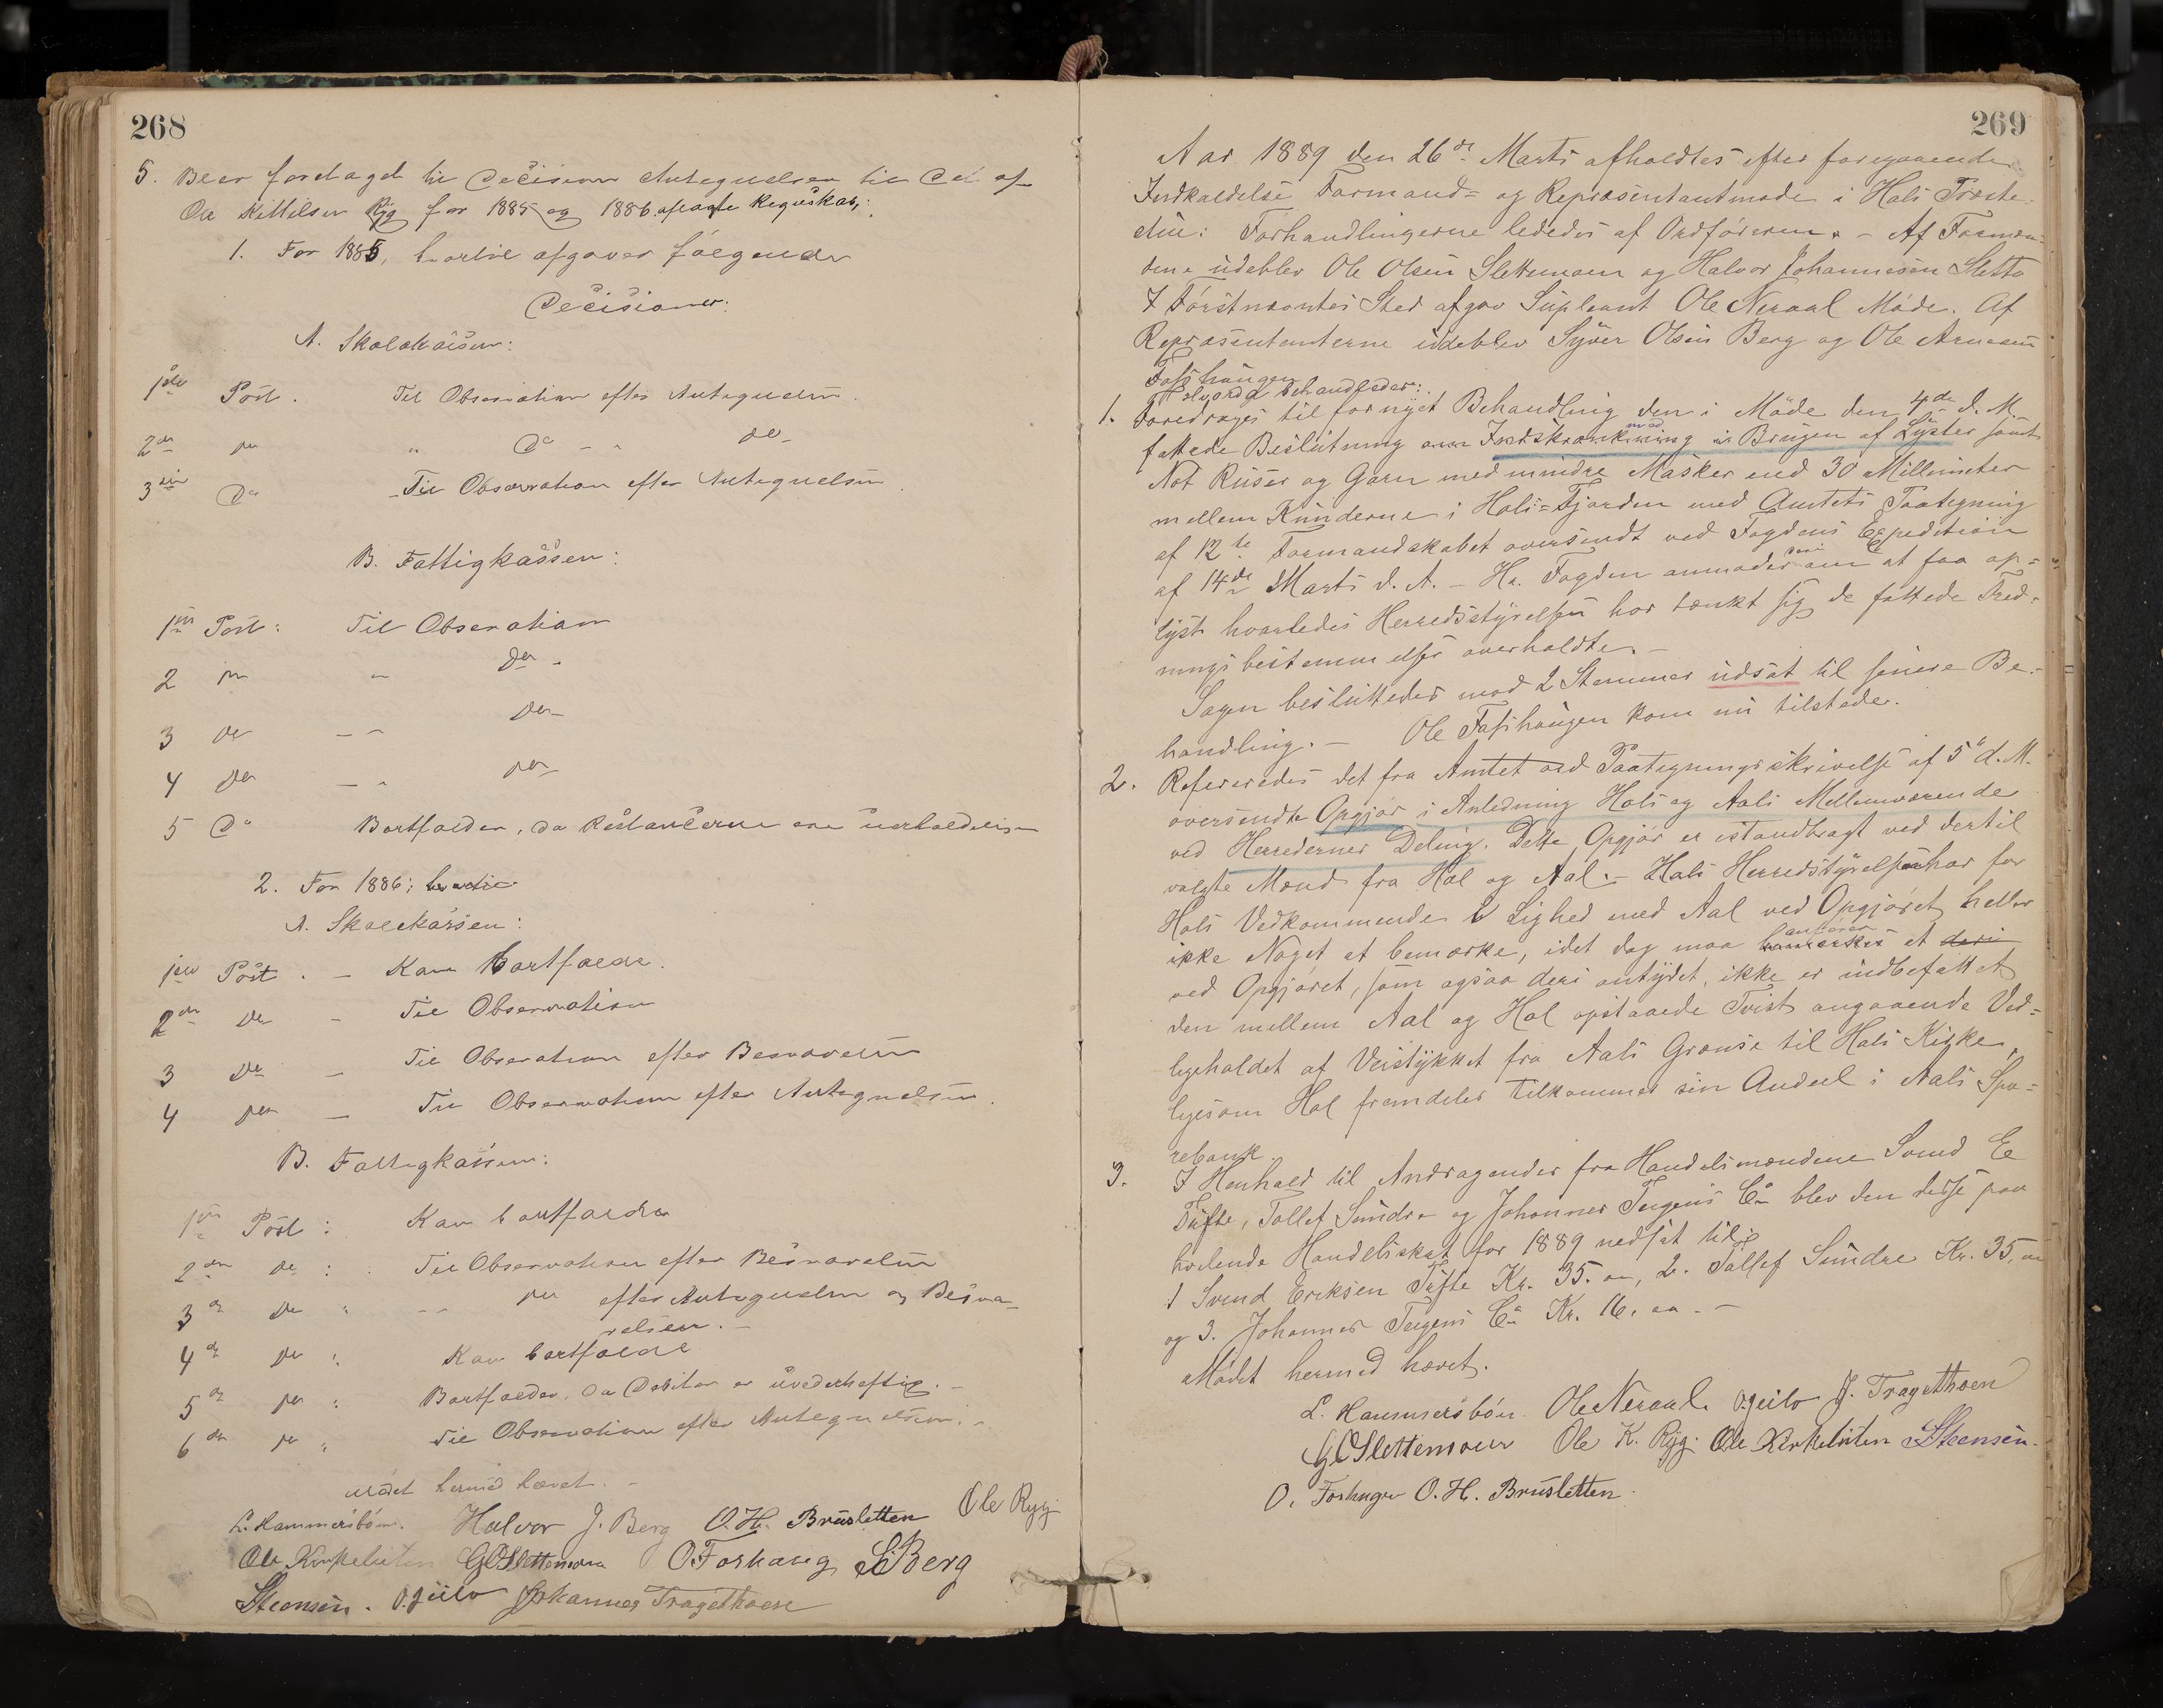 268
5. Blev foretaget til Decision Antegnelser til det af
Ole Kittilsen Ryg for 1885 og 1886 aflagte Regnskab;
1. For 1885, hvortil afgaves følgende
Decisioner:
A. Skolekassen:
1ste Post. Til Observation efter Antegnelsen.
2den do " Do - " do-
3die Do - Til Observation efter Antegnelsen.
B. Fattigkassen:
1ste Post: Til Observation
2 do " do -
3 do - " do-
4 do - " do-
5 Do Bortfalder, da Restancerne ere uerholdelige
2. For 1886; hvortil
A. Skolekassen:
1ste Post. - Kan bortfalde.
2den do - Til Observation
3 do - Til Observation efter Besvarelsen
4 do - Til Observation efter Antegnelsen.
B. Fattigkassen:
1ste Post: Kan bortfalde
2den do: Til Observation efter Besvarelsen
3de do " - - do efter Antegnelsen og Besva-
relsen. -
4de do " Kan bortfalde
5te do " Bortfalder, da Debitor er uvederheftig. -
6te do " Til Observation efter Antegnelsen. -
Mødet hermed hævet. -
L. Hammersbøn. Halvor J. Berg O. H. Brusletten Ole Ryg
Ole Kirkeluten G O Slettemoen O Foshaug S Berg
Steensen. O. Geilo Johannes Tragethoen
269
Aar 1889 den 26de Marts afholdtes efter foregaaende
Indkaldelse Formand- og Repræsentantmøde i Hols Præste-
stue: Forhandlingerne lededes af Ordføreren. - Af Formæn-
dene udeblev Ole Olsen Slettemoen og Halvor Johannesen Sletto
I Førstnævntes Sted afgav Supleant Ole Neraal Møde. Af
Repræsentanterne udeblev Syver Olsen Berg og Ole Arnesen
Fosshaugen
Hvorda behandledes:
1. Foredroges til fornyet Behandling den i Møde den 4de d. M.
fattede Beslutning om Indskrænkning i Brugen af Lyster samt
Not Ruser og Garn med mindre Masker end 30 Millimeter
mellem Knuderne i Hols-Fjorden med Amtets Paategning
af 12te Formandskabet oversendt ved Fogdens Expedition
af 14de Marts d. A. - Hr. Fogden anmoder om at faa op-
lyst hvorledes Herredsstyrelsen har tænkt sig de fattede Fred-
ningsbestemmelser overholdte. -
Sagen besluttedes mod 2 Stemmer udsat til senere Be-
handling. - Ole Fosshaugen kom nu tilstede.
2. Refereredes det fra Amtet ved Paategningsskrivelse af 5te d. M.
oversendte Opgjør i Anledning Hols og Aals Mellemværende
ved Herredernes Deling. Dette Opgjør er istandbragt ved dertil
valgte Mænd fra Hol og Aal. - Hols Herredsstyrelse har for
Hols Vedkommende i Lighed med Aal ved Opgjøret heller
ikke Noget at bemærke, idet dog maa anføres at
ved Opgjøret, som ogsaa deri antydet, ikke er indbefattet
den mellem Aal og Hol opstaaede Tvist angaaende Ved-
ligeholdet af Veistykket fra Aals Grænse til Hols Kirke,
ligesom Hol fremdeles tilkommer sin Andeel i Aals Spa-
rebank.
3. I Henhold til Andragender fra Handelsmændene Svend E
Tufte, Tollef Sundre og Johannes Tegens Co blev den disse paa
hvilende Handelsskat for 1889 nedsat til:
1 Svend Eriksen Tufte Kr. 35. oo, 2. Tollef Sundre Kr. 35, oo
og 3. Johannes Tegens Co Kr. 16, oo. -
Mødet hermed hævet.
L. Hammersbøn. Ole Neraal. O. Geilo J. Tragethoen
G O Slettemoen Ole K. Ryg. Ole Kirkeluten Steensen.
O. Foshaugen O. H. Brusletten.